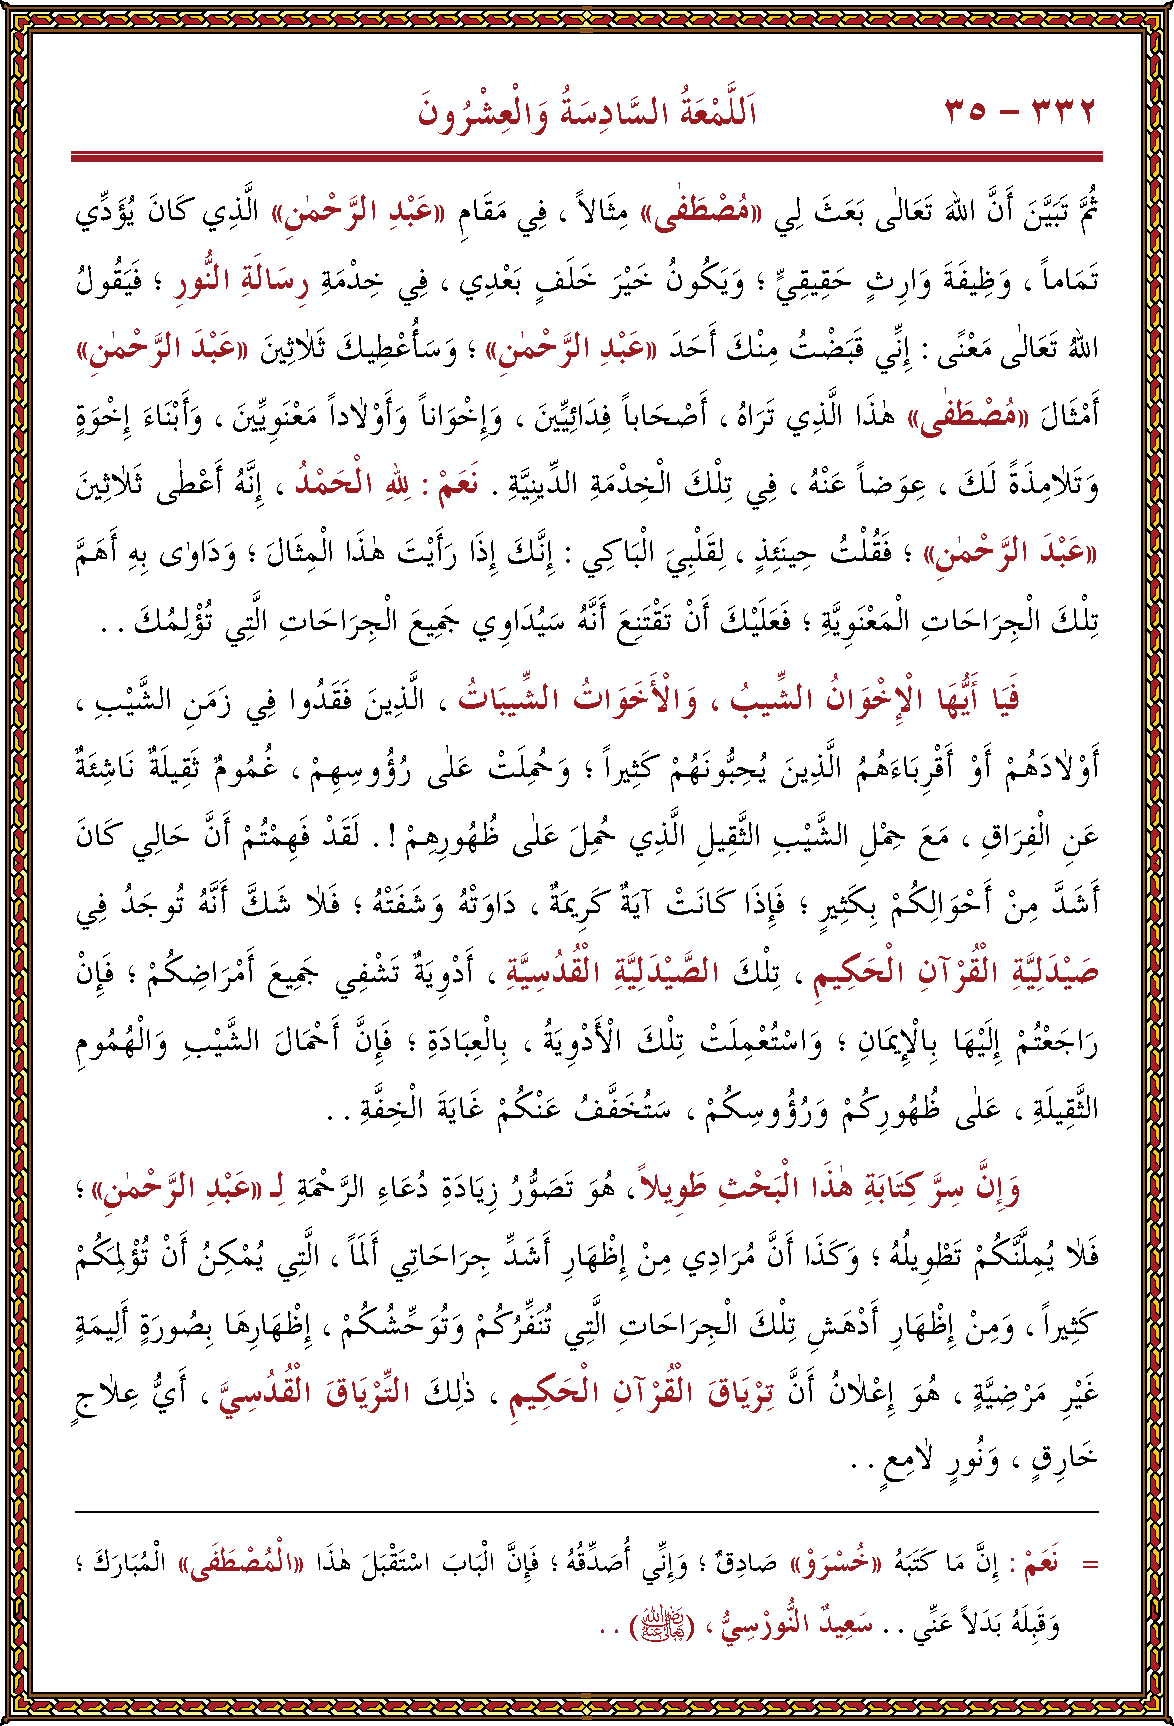 ٣٣٢ – ٣٥
اَللَّمْعَةُ السَّادِسَةُ وَالْعِشْرُونَ
ثُمَّ تَبَيَّنَ أَنَّ اللهَ تَعَالٰى بَعَثَ لِي «مُصْطَفٰى» مِثَالاً ، فِي مَقَامِ «عَبْدِ الرَّحْمٰنِ» الَّذِي كَانَ يُؤَدِّي
تَمَاماً ، وَظِيفَةَ وَارِثٍ حَقِيقِيٍّ ؛ وَيَكُونُ خَيْرَ خَلَفٍ بَعْدِي ، فِي خِدْمَةِ رِسَالَةِ النُّورِ ؛ فَيَقُولُ
اللهُ تَعَالٰى مَعْنًى : إِنِّي قَبَضْتُ مِنْكَ أَحَدَ «عَبْدِ الرَّحْمٰنِ» ؛ وَسَأُعْطِيكَ ثَلاٰثِينَ «عَبْدَ الرَّحْمٰنِ»
أَمْثَالَ «مُصْطَفٰى» هٰذَا الَّذِي تَرَاهُ ، أَصْحَاباً فِدَائِيِّينَ ، وَإِخْوَاناً وَأَوْلاٰداً مَعْنَوِيِّينَ ، وَأَبْنَاءَ إِخْوَةٍ
وَتَلاٰمِذَةً لَكَ ، عِوَضاً عَنْهُ ، فِي تِلْكَ الْخِدْمَةِ الدِّينِيَّةِ . نَعَمْ : لِلهِ الْحَمْدُ ، إِنَّهُ أَعْطٰى ثَلاٰثِينَ
«عَبْدَ الرَّحْمٰنِ» ؛ فَقُلْتُ حِينَئِذٍ ، لِقَلْبِيَ الْبَاكِي : إِنَّكَ إِذَا رَأَيْتَ هٰذَا الْمِثَالَ ؛ وَدَاوٰى بِهِ أَهَمَّ
تِلْكَ الْجِرَاحَاتِ الْمَعْنَوِيَّةِ ؛ فَعَلَيْكَ أَنْ تَقْتَنِعَ أَنَّهُ سَيُدَاوِي جَمِيعَ الْجِرَاحَاتِ الَّتِي تُؤْلِمُكَ . .
فَيَا أَيُّهَا الْإِخْوَانُ الشِّيبُ ، وَالْأَخَوَاتُ الشِّيبَاتُ ، الَّذِينَ فَقَدُوا فِي زَمَنِ الشَّيْبِ ،
أَوْلاٰدَهُمْ أَوْ أَقْرِبَاءَهُمُ الَّذِينَ يُحِبُّونَهُمْ كَثِيراً ؛ وَحُمِلَتْ عَلٰى رُؤُوسِهِمْ ، غُمُومٌ ثَقِيلَةٌ نَاشِئَةٌ
عَنِ الْفِرَاقِ ، مَعَ حِمْلِ الشَّيْبِ الثَّقِيلِ الَّذِي حُمِلَ عَلٰى ظُهُورِهِمْ ! . لَقَدْ فَهِمْتُمْ أَنَّ حَالِي كَانَ
أَشَدَّ مِنْ أَحْوَالِكُمْ بِكَثِيرٍ ؛ فَإِذَا كَانَتْ آيَةٌ كَرِيمَةٌ ، دَاوَتْهُ وَشَفَتْهُ ؛ فَلاٰ شَكَّ أَنَّهُ تُوجَدُ فِي
صَيْدَلِيَّةِ الْقُرْآنِ الْحَكِيمِ ، تِلْكَ الصَّيْدَلِيَّةِ الْقُدْسِيَّةِ ، أَدْوِيَةٌ تَشْفِي جَمِيعَ أَمْرَاضِكُمْ ؛ فَإِنْ
رَاجَعْتُمْ إِلَيْهَا بِالْإِيمَانِ ؛ وَاسْتُعْمِلَتْ تِلْكَ الْأَدْوِيَةُ ، بِالْعِبَادَةِ ؛ فَإِنَّ أَحْمَالَ الشَّيْبِ وَالْهُمُومِ
الثَّقِيلَةِ ، عَلٰى ظُهُورِكُمْ وَرُؤُوسِكُمْ ، سَتُخَفَّفُ عَنْكُمْ غَايَةَ الْخِفَّةِ . .
وَإِنَّ سِرَّ كِتَابَةِ هٰذَا الْبَحْثِ طَوِيلاً ، هُوَ تَصَوُّرُ زِيَادَةِ دُعَاءِ الرَّحْمَةِ لِـ «عَبْدِ الرَّحْمٰنِ» ؛
فَلاٰ يُمِلَّنَّكُمْ تَطْوِيلُهُ ؛ وَكَذَا أَنَّ مُرَادِي مِنْ إِظْهَارِ أَشَدِّ جِرَاحَاتِي أَلَماً ، الَّتِي يُمْكِنُ أَنْ تُؤْلِمَكُمْ
كَثِيراً ، وَمِنْ إِظْهَارِ أَدْهَشِ تِلْكَ الْجِرَاحَاتِ الَّتِي تُنَفِّرُكُمْ وَتُوَحِّشُكُمْ ، إِظْهَارِهَا بِصُورَةٍ أَلِيمَةٍ
غَيْرِ مَرْضِيَّةٍ ، هُوَ إِعْلاٰنُ أَنَّ تِرْيَاقَ الْقُرْآنِ الْحَكِيمِ ، ذٰلِكَ التِّرْيَاقَ الْقُدْسِيَّ ، أَيُّ عِلاٰجٍ
خَارِقٍ ، وَنُورٍ لاٰمِعٍ . .
= نَعَمْ : إِنَّ مَا كَتَبَهُ «خُسْرَوْ» صَادِقٌ ؛ وَإِنِّي أُصَدِّقُهُ ؛ فَإِنَّ الْبَابَ اسْتَقْبَلَ هٰذَا «الْمُصْطَفَى» الْمُبَارَكَ ؛
وَقَبِلَهُ بَدَلاً عَنِّي . . سَعِيدٌ النُّورْسِيُّ ، (رضي الله تعالى عنه) . .